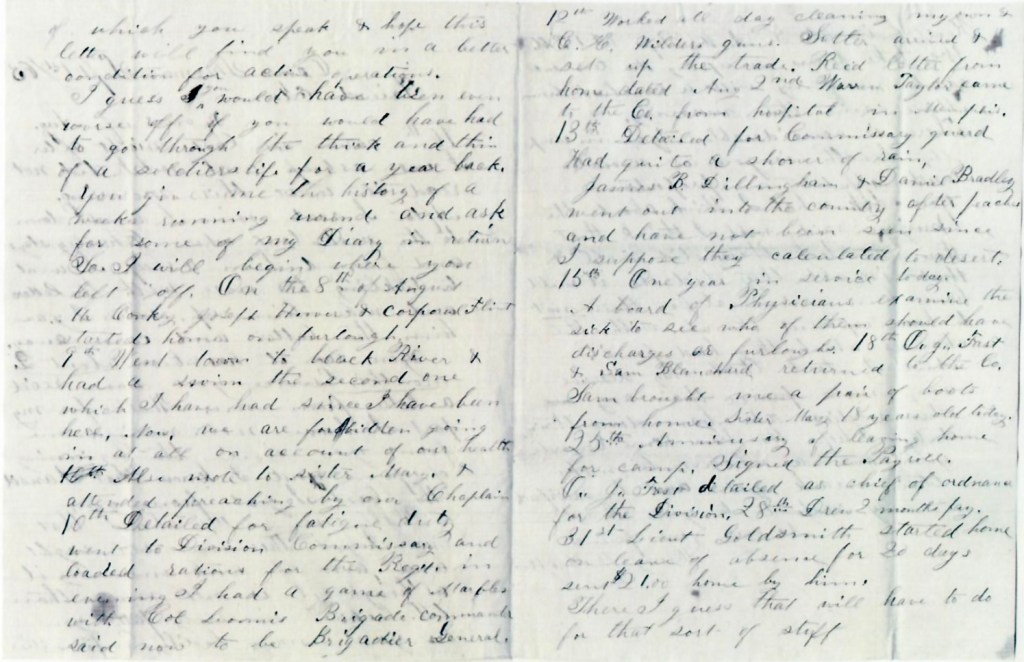 of which you speak & hope this
letter will find you in a better
condition for active operations.
I guess you would have been even
worse off if you would have had
to go through the thick and thin
of a soldiers life for a year back.
You give me the history of a
weeks running around and ask
for some of my Diary in return
So I will begin where you
left off. On the 8th of August
the Cook, Joseph & Corporal Flint
started home on furlough.
9th Went down to black River &
had a swim the second one
which I have had since I have been
here. Now we are forbidden going
in at all on account of our health
Also wrote to sister Mary &
attended preaching by our Chaplain
10th Detailed for fatigue duty
went to Division Commissary and
loaded rations for the Regt in
evening I had a game of
with Col Loomis Brigade commander
said now to be Brigadier General.
12th Worked all day cleaning my own &
C. H. Wilders guns. Sutler arrived &
set up the trade. Recd letter from
home dated Aug 2nd Warren Taylor came
to the Co. from hospital in Memphis.
13th Detailed for Commissary guard
Had quite a shower of rain,
James B. Dillingham & Daniel Bradley
went out into the country after peaches
and have not been seen since
I suppose they calculated to desert.
15th One year in service today.
A board of Physicians examine the
sick to see who of them should have
discharges or furloughs. 18th Frost
& Sam Blanchard returned to the Co.
Sam brought me a pair of boots
from home. Sister Mary 18 years old today.
25th Anniversary of leaving home
for camp. Signed the Payroll.
detailed as chief of ordnance
for the Division. 28th Drew 2 months pay.
31st Lieut Goldsmith started home
on leave of absense for 20 days
sent $21.00 home by him.
There I guess that will have to do
for that sort of stuff